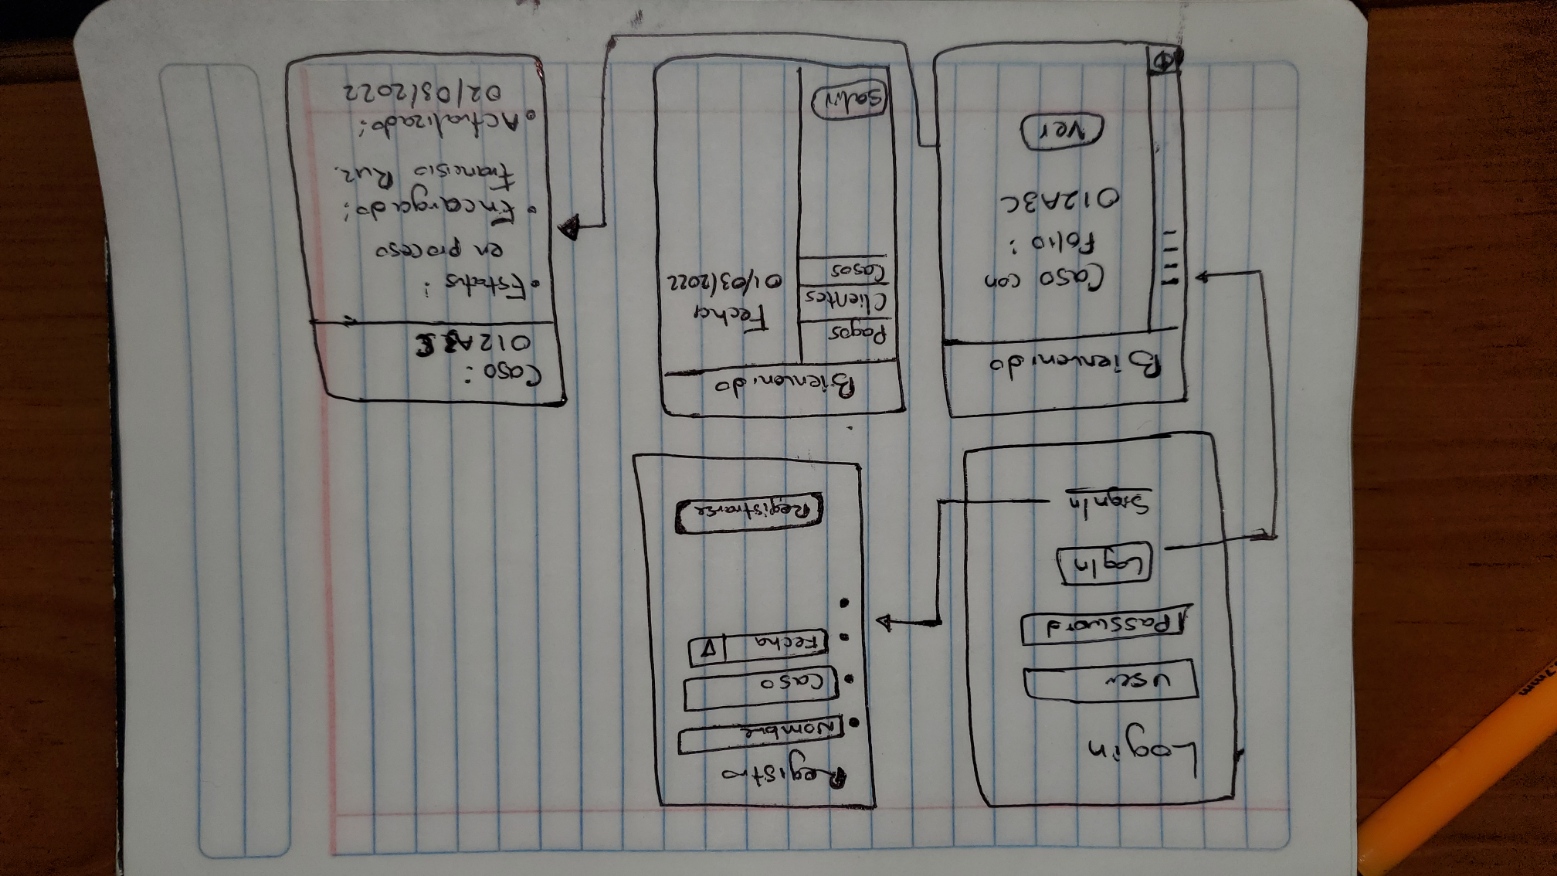 Login
User
Password
LogIn
SignIn
Registro
Nombre
Caso
Fecha
Registrarse
Bienvenido
Caso con
Folio:
012A3C
Ver
Bienvenido
Pagos
Clientes
Casos
Salir
Fecha
01/03/2022
Caso:
012A3C
Estatus:
en proceso
Encargado:
Francisio Ruiz.
Actualizado:
02/03/2022